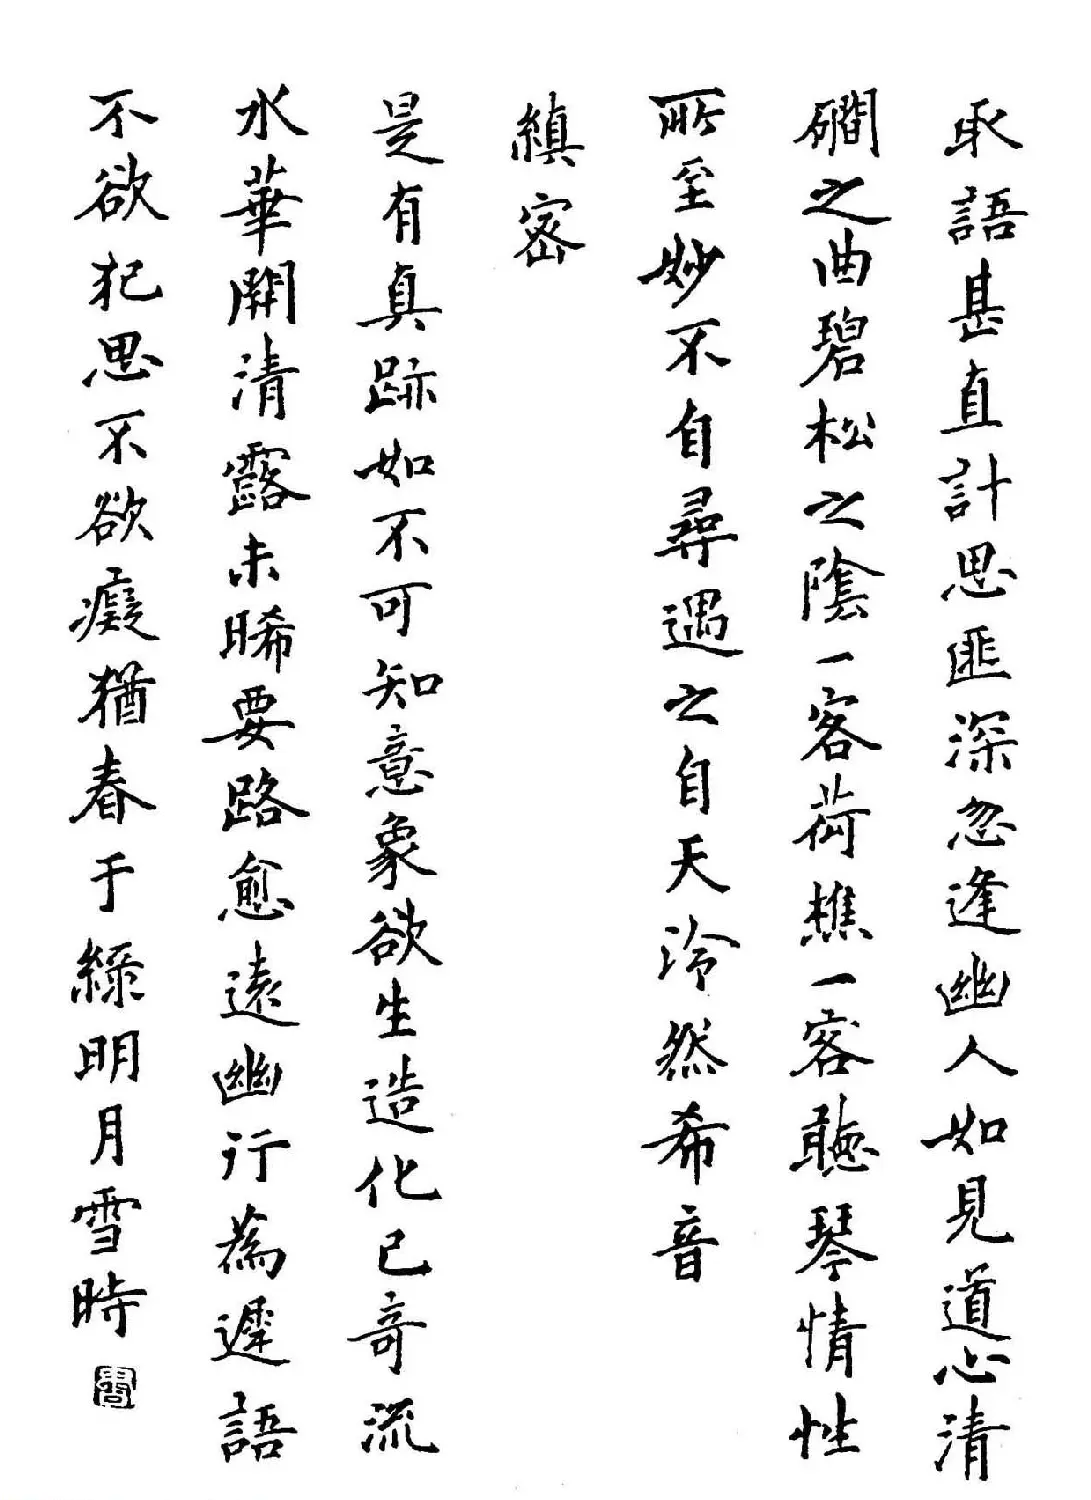 取語甚直計思匪深忽逢幽人如見道心清
磵之曲碧松之陰一客荷樵一客聽琴情性
所至妙不自尋遇之自天泠然希音
縝密
是有真跡如不可知意象欲生造化已奇流
水華開清露未晞要路愈遠幽行為遲語
不欲犯思不欲癡猶春于綠明月雪時